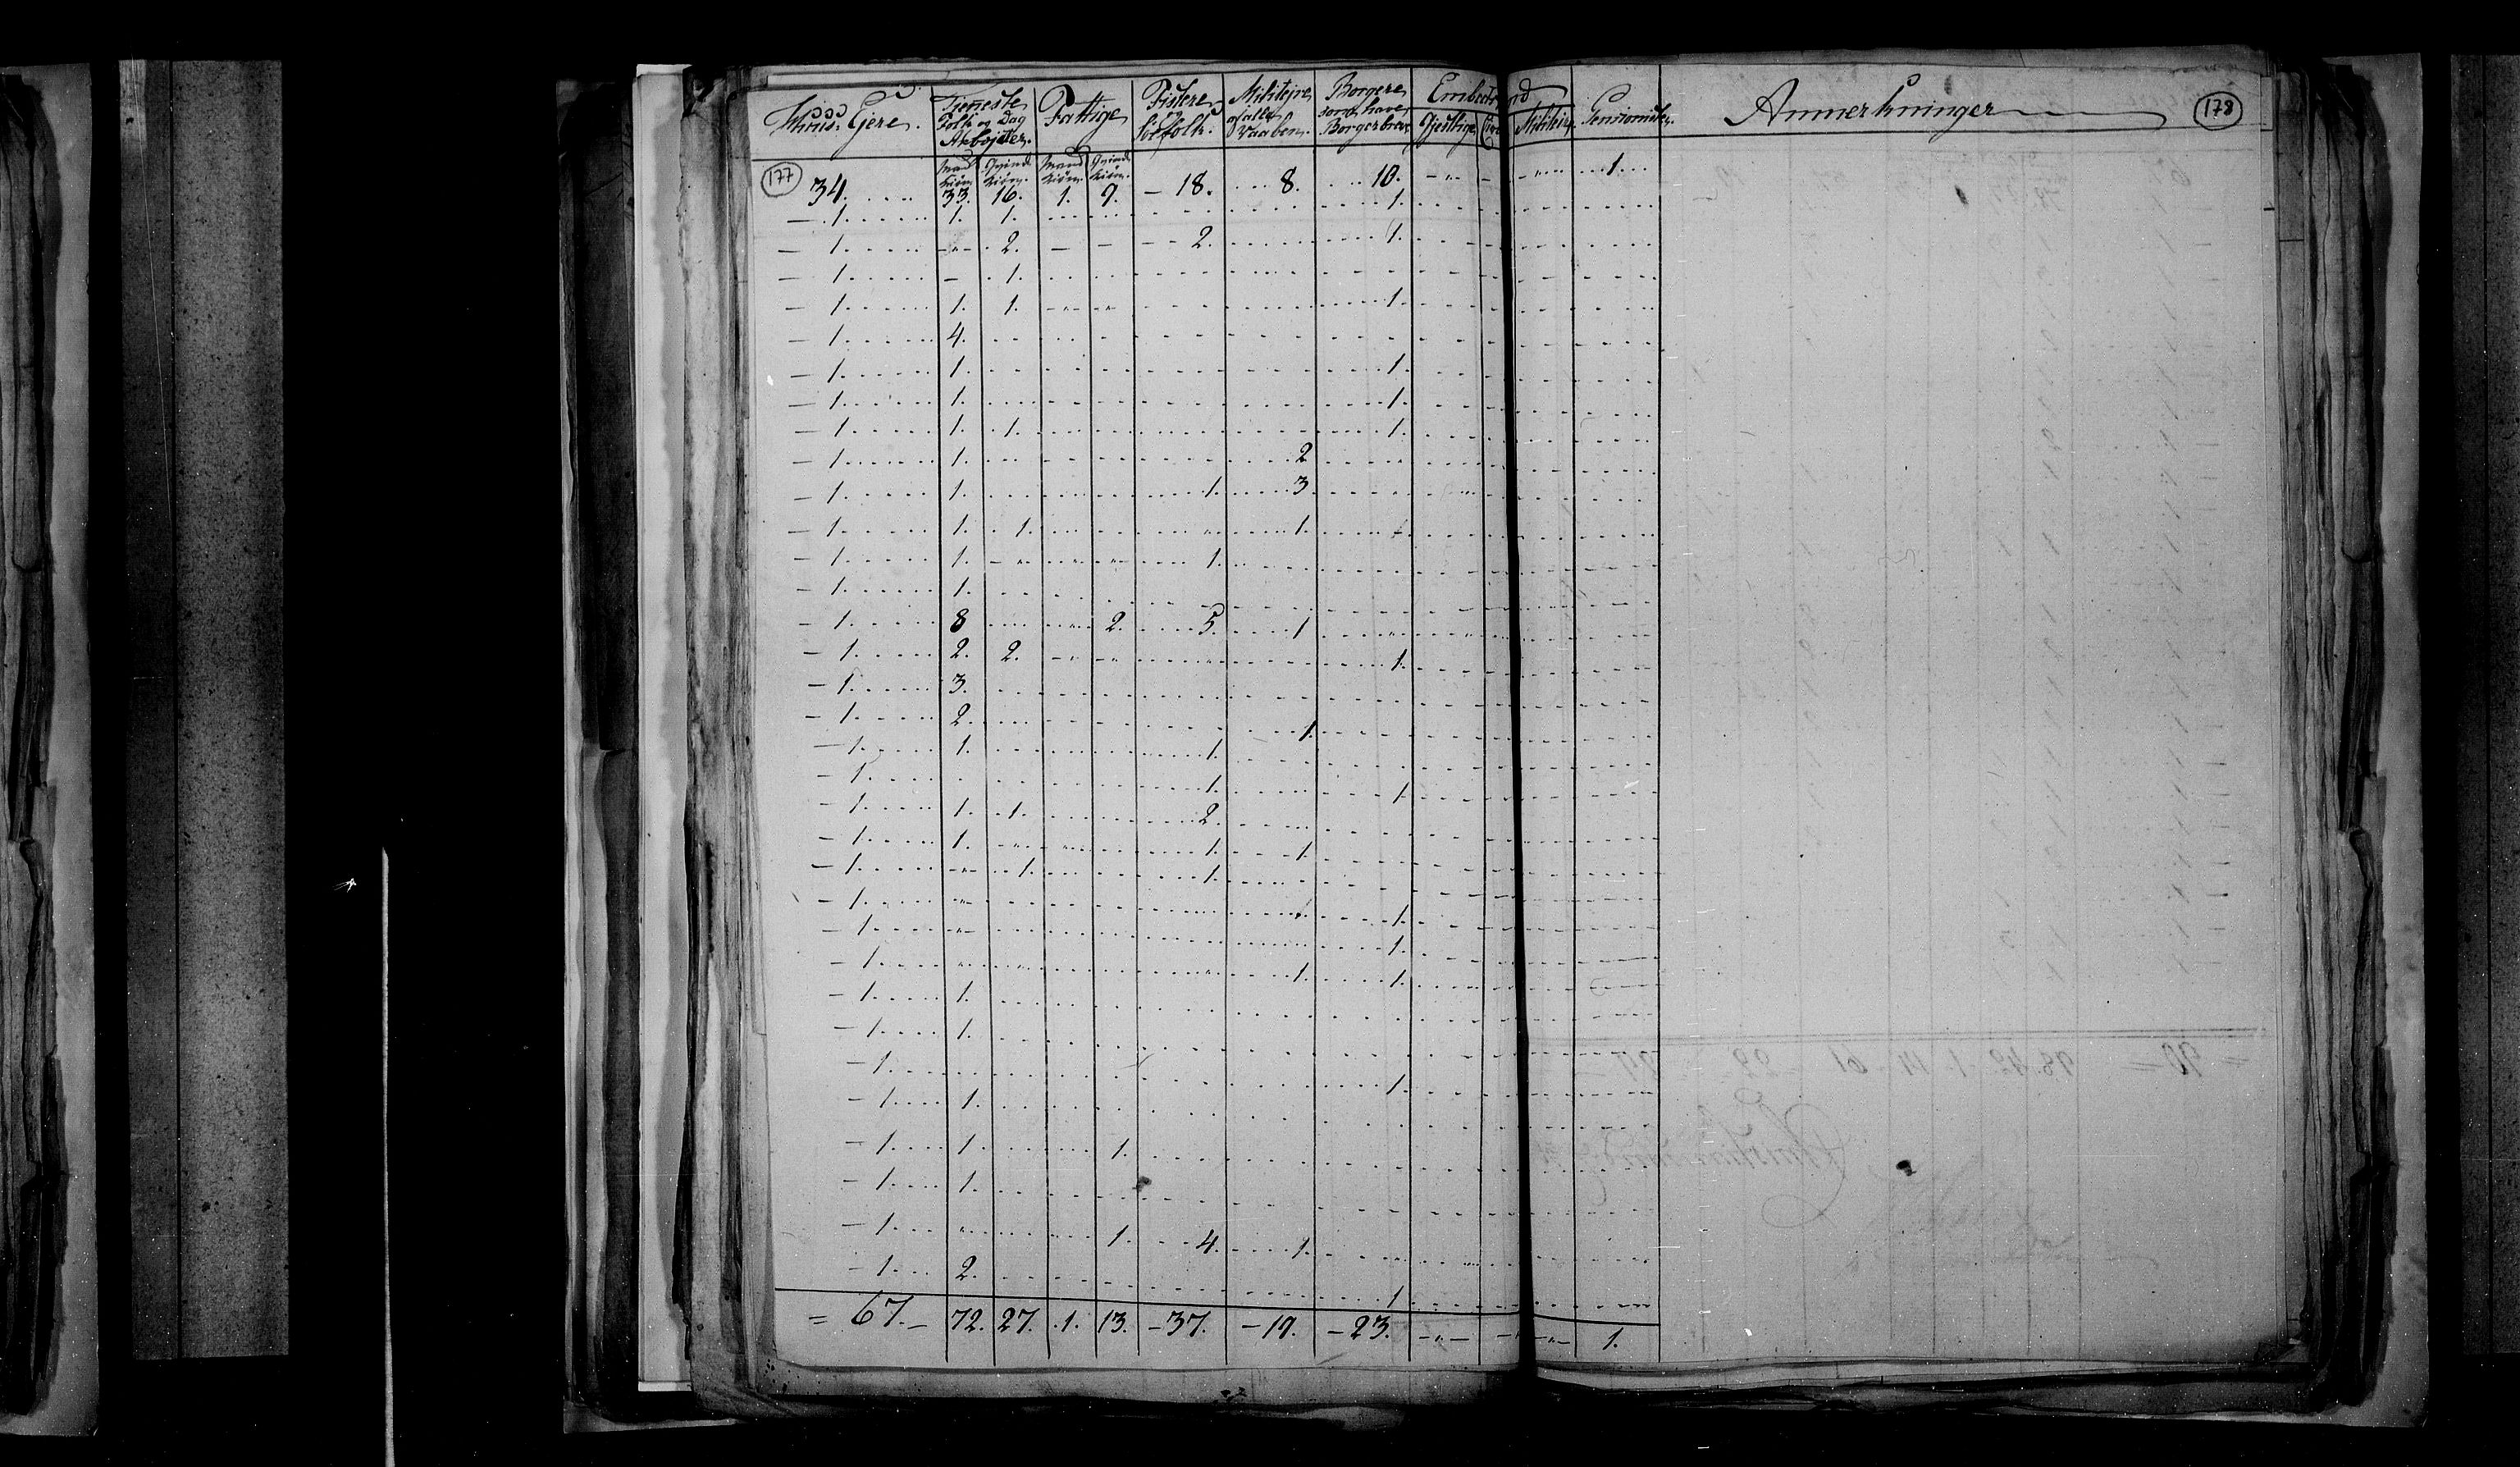 Huus: Ejere. Tjeneste Folk og Dag Arbejder. Fattige Fiskere og Søefolk. Militejre af alle Vaaben. Borgere som have Borgerbrev Embeds Mænd Pensionister. Anmerkninger 178
Gjestlige Militeire
177 Mand kiøn. Qvinde kiøn. Mand kiøn. Qvinde kiøn.
34. 33. 16. 1. 9. - 18. 8. 10. 1.
- 1. 1. 1. 1.
- 1. 2. - - 2. 1.
- 1. - 1.
- 1. 1. 1. 1.
- 1. 4.
- 1. 1. 1.
- 1. 1. 1.
- 1. 1. 1. 1.
- 1. 1. 2
- 1. 1. 1. 3.
- 1. 1. 1. 1.
- 1. 1. 1.
- 1. 1.
- 1. 8 2. 5. 1
- 1. 2. 2. 1.
- 1. 3.
- 1. 2. 1.
- 1. 1. 1.
- 1. 1. 1.
- 1. 1. 1. 2.
- 1. 1. 1. 1.
- 1. 1. 1.
- 1. 1.
- 1. 1.
- 1. 1. 1.
- 1. 1.
- 1. 1.
- 1. 1.
- 1. 1.
- 1. 1. 1.
- 1. 1.
- 1. 1. 4. 1.
- 1. 2. 1.
= 67. - 72. 27. 1. 13. - 37. - 19. - 23. 1.